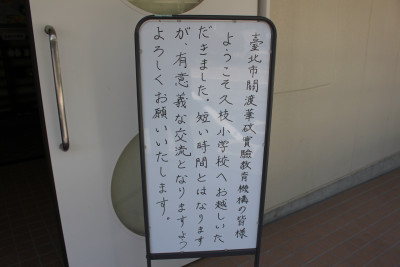 臺北市關渡華砇實驗教育機構の皆様
ようこそ久枝小学校へお越しいた
だきました。短い時間とはなります
が、有意義な交流となりますよう
よろしくお願いいたします。